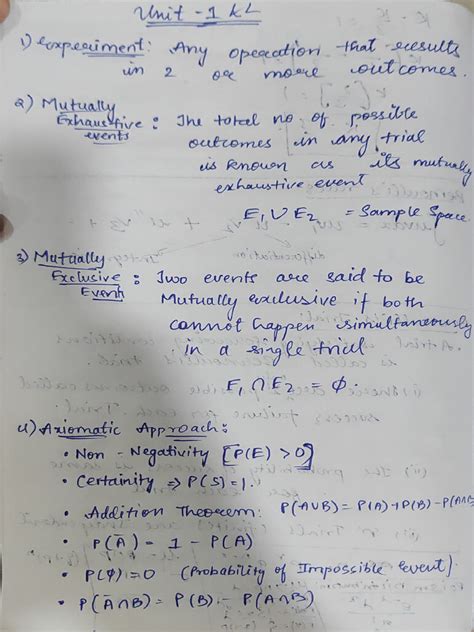 Unit - 1 KL
1) Experiment: Any operation that results
in 2 or more outcomes.
2) Mutually
Exhaustive : The total no of possible
events
outcomes in any trial
is known as its mutually
exhaustive event
E₁ ∪ E₂ = Sample Space
3) Mutually
Exclusive : Two events are said to be
Event
Mutually exclusive if both
cannot happen simultaneously
in a single trial
E₁ ∩ E₂ = ϕ.
4) Axiomatic Approach:
• Non - Negativity [P(E) > 0]
• Certainity ⇒ P(S) = 1.
• Addition Theorem: P(A∪B) = P(A)+P(B)-P(A∩B)
• P(Ā) = 1 - P(A)
• P(ϕ) = 0 (Probability of Impossible Event)
• P(Ā∩B) = P(B) - P(A∩B)